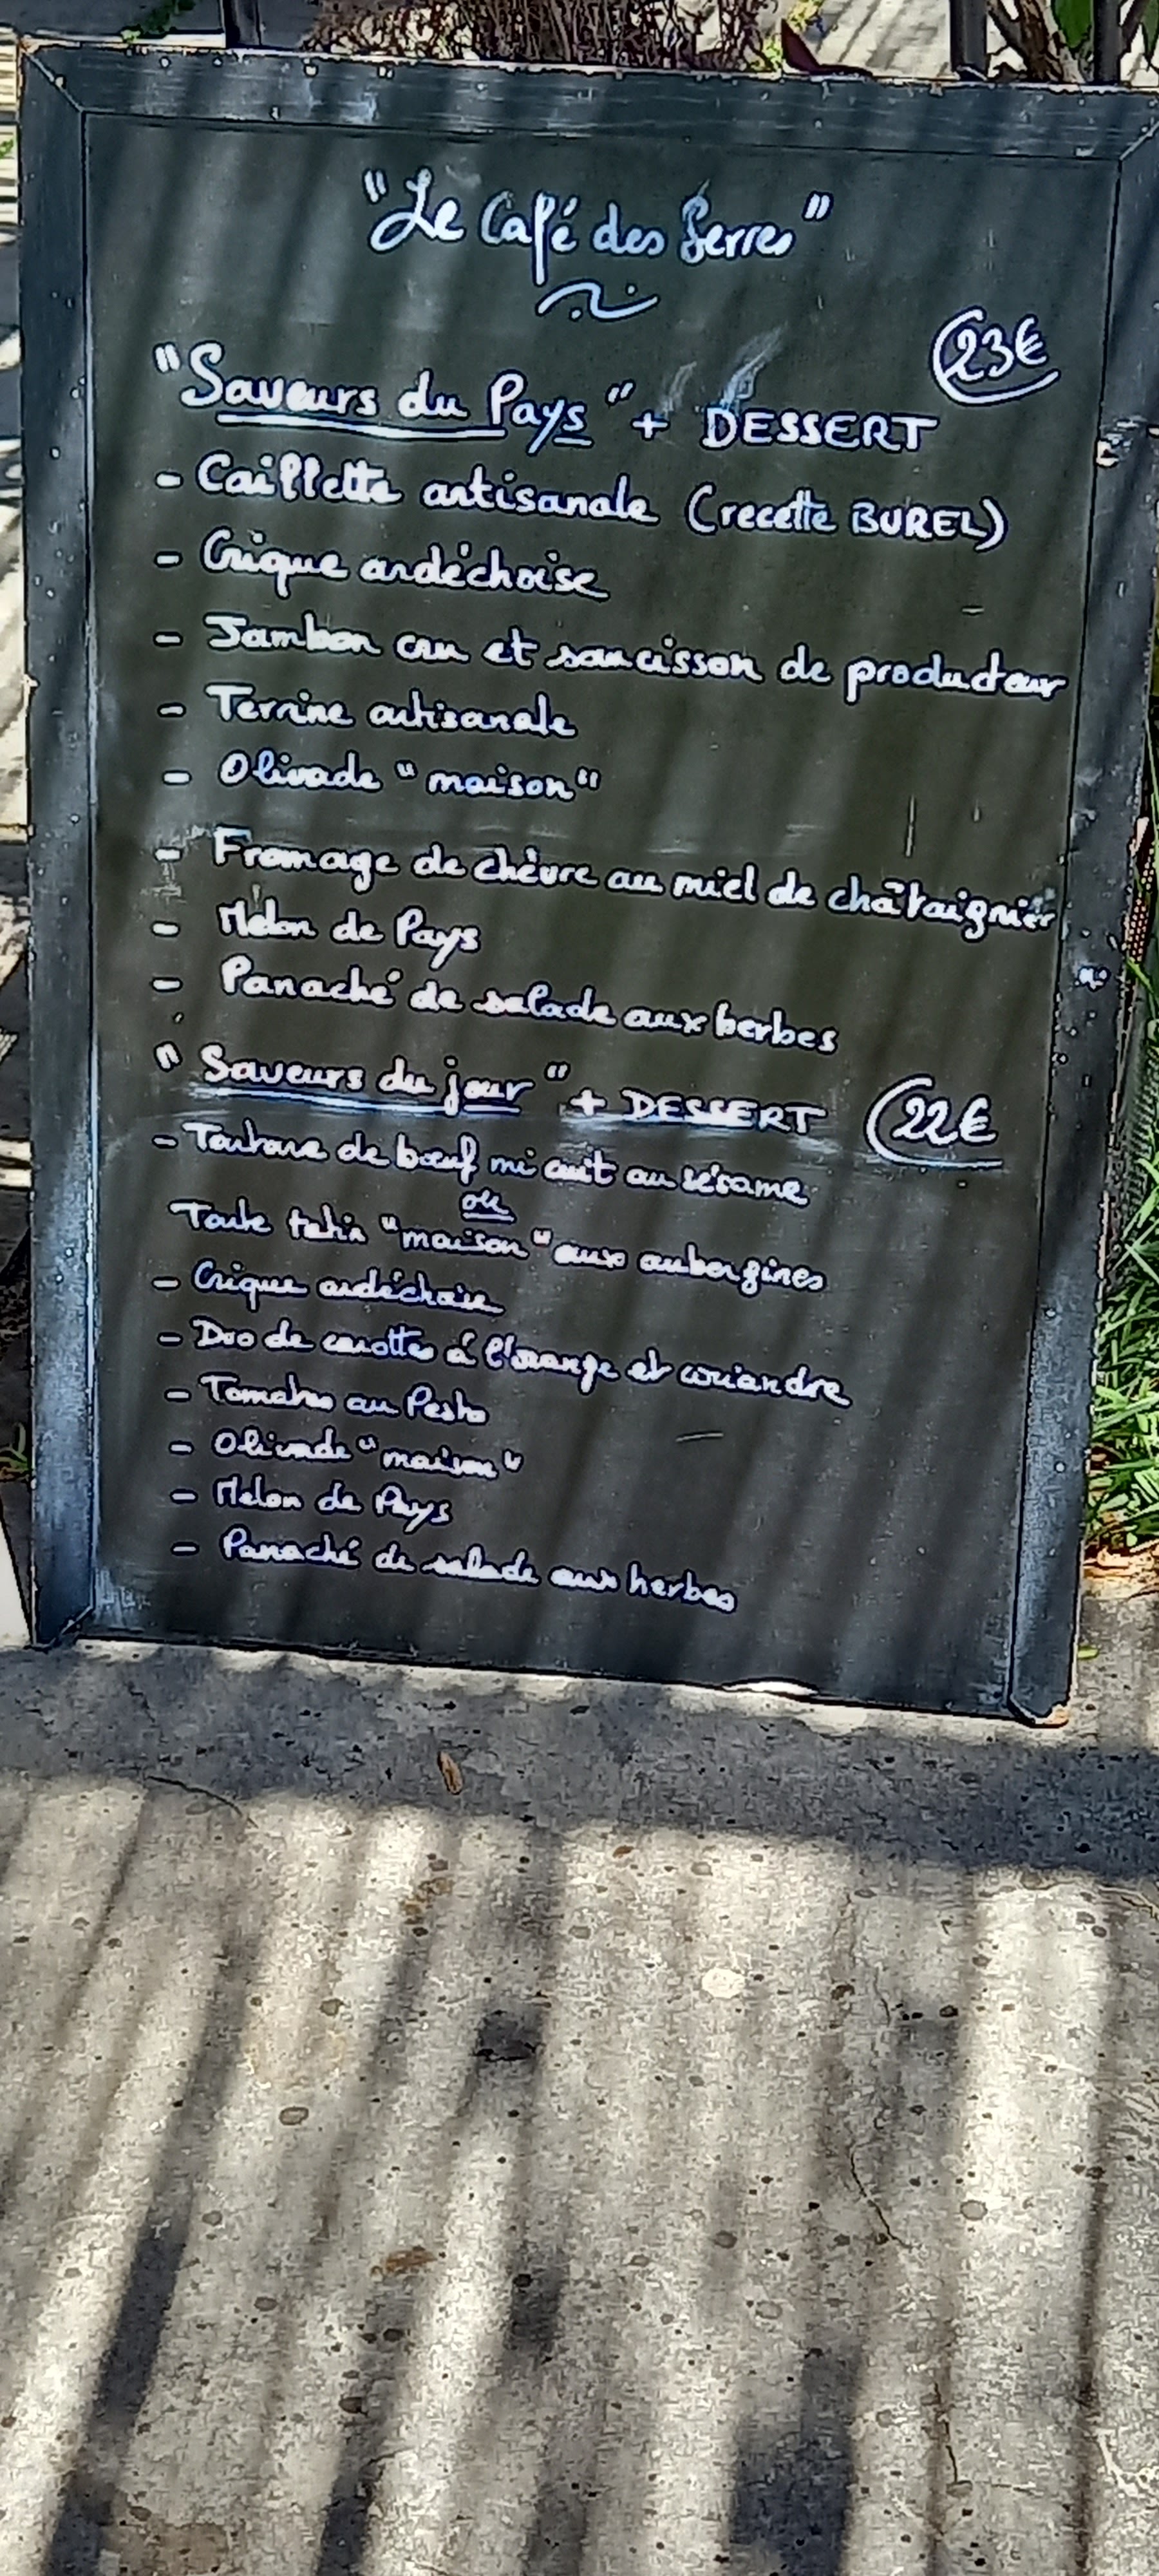 "Le Café des Serres"
23€
"Saveurs du Pays" + DESSERT
- Caillette artisanale (recette BUREL)
- Crique ardéchoise
- Jambon cru et saucisson de producteur
- Terrine artisanale
- Olivade "maison"
- Fromage de chèvre au miel de châtaignier
- Melon de Pays
- Panaché de salade aux herbes
"Saveurs du jour" + DESSERT 22€
- Tartare de bœuf mi cuit au sésame
ou
Tarte tatin "maison" aux aubergines
- Crique ardéchoise
- Duo de carottes à l'orange et coriandre
- Tomates au Pesto
- Olivade "maison"
- Melon de Pays
- Panaché de salade aux herbes